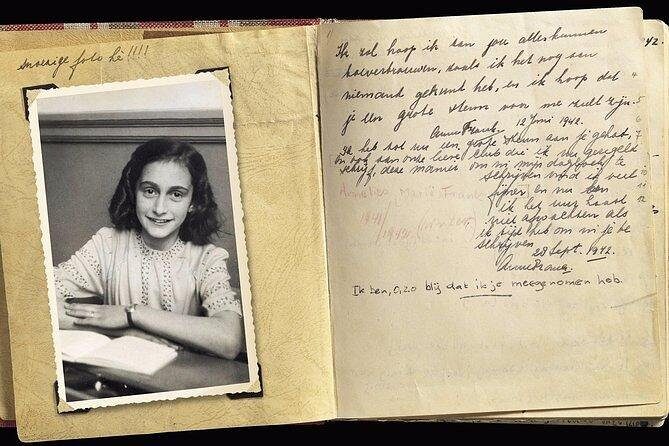 snoezige foto hè!!!!
Ik zal hoop ik aan jou alles kunnen
toevertrouwen, zoals ik het nog aan
niemand gekund heb, en ik hoop dat
je een grote steun voor me zult zijn.
Anne Frank. 12 Juni 1942.
Ik heb tot nu een grote steun aan je gehad,
en ook aan onze lieve club die ik nu geregeld
schrijf, deze manier om in mijn dagboek te
schrijven vind ik veel
fijner en nu kan
ik het uur haast
niet afwachten als
ik tijd heb om in je te
schrijven
28 Sept. 1942.
Anne Frank.
Ik ben, o, zo blij dat ik je meegenomen heb.
42.
4
5
6
7